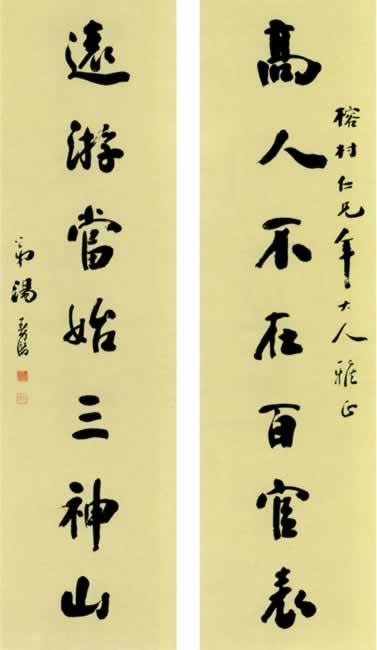 榕村仁兄年大人雅正
高人不在百官表
遠游當始三神山
弟湯壽潛